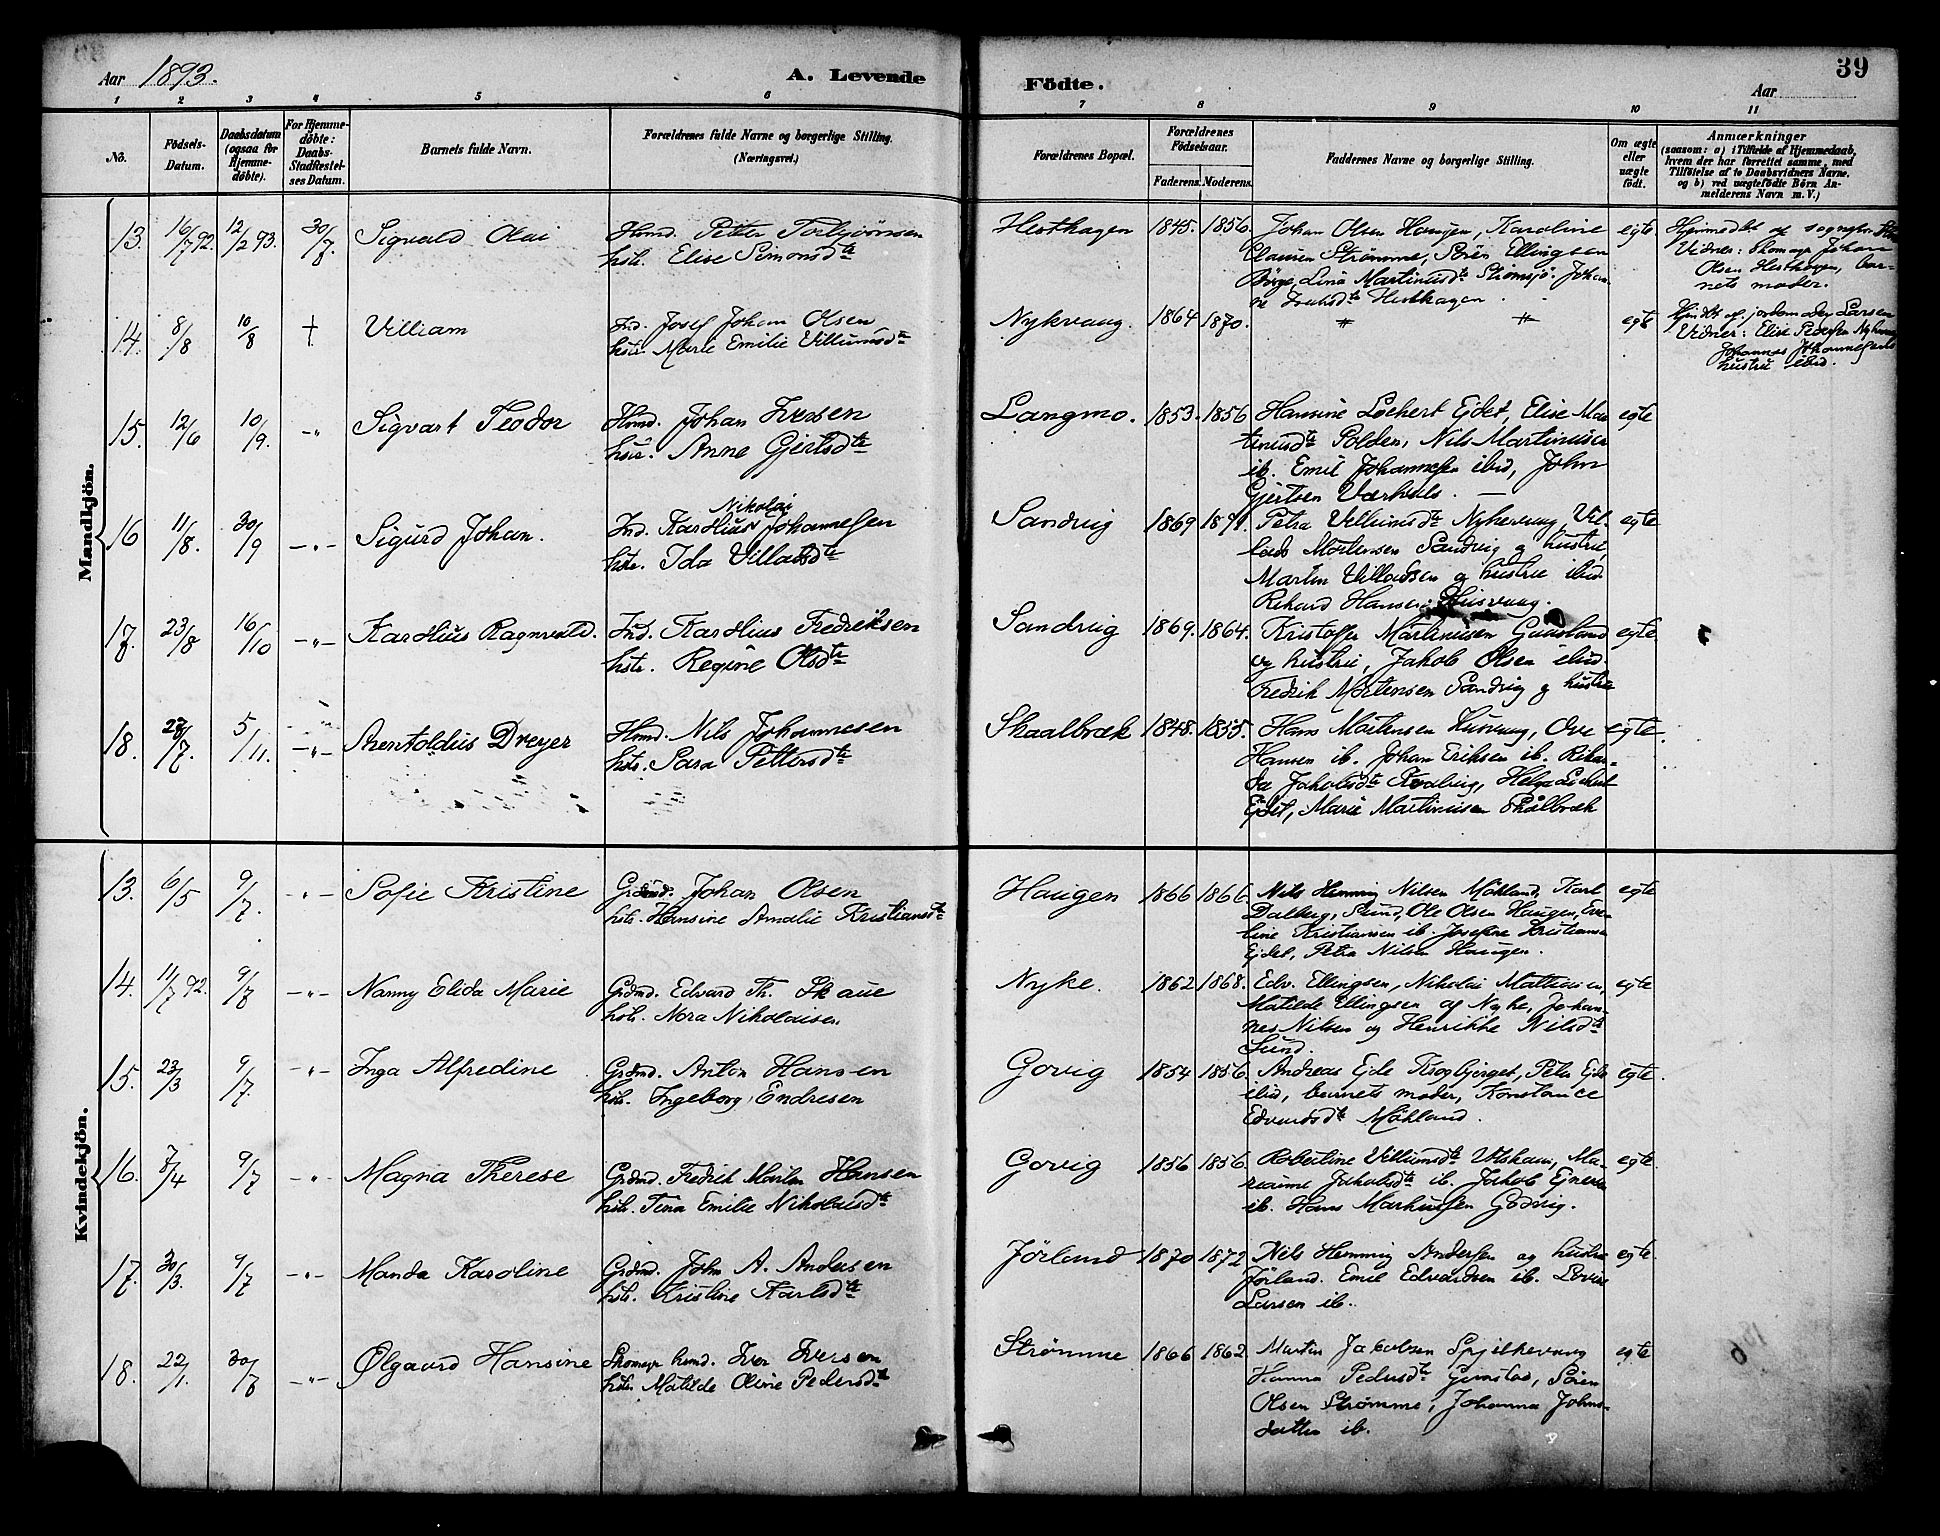 Aar 1893.
A. Levende Födte.
39
Aar
1 2 3 4 5 6 7 8 9 10 11
No.
Födsels-Datum.
Daabsdatum (ogsaa for Hjemme-döbte).
For Hjemme-döbte: Daabs-Stadfæstel-ses Datum.
Barnets fulde Navn.
Forældrenes fulde Navne og borgerlige Stilling. (Næringsvei.)
Forældrenes Bopæl.
Forældrenes Födselsaar.
Faderens. Moderens.
Faddernes Navne og borgerlige Stilling.
Om ægte eller uægte födt.
Anmærkninger
(saasom: a) i Tilfælde af Hjemmedaab,
hvem der har forrettet samme, med
Tilföielse af to Daabsvidners Navne,
og b) ved uægtefödte Börn An-
melderens Navn m. V.)
Mandkjön.
13. 16/7 92. 12/2 93. 30/7. Sigvald Olai
Hmd. Petter Torbjörnsen
hstr. Elise Simonsdtr
Hesthagen 1845. 1856.
Johan Olsen Haugen, Karoline
Clausen Strømme, Sören Ellingsen
Börge, Lina Martinusdtr Strömsjö. Johan-
Hesthagen.
egte
Vidner: Johan
Olsen Hesthagen, bar-
nets moder.
14. 8/8 10/8 † Villiam
Ind. Josef Johan Olsen
hstr. Marie Emilie Villumsdtr
Nykvaag. 1864 1870. egte
af jordemoder Larsen
Vidner: Elise
hustru ibid.
15. 12/6 10/9. -"- Sigvart Teodor
Hmd. Johan Iversen
hstr. Anne Gjertsdtr
Langmo. 1853. 1856
Hansine Lockert Eidet, Elise Mar-
tinusdtr Polden, Nils Martinusen
ib. Emil Johannessen ibid, John
Gjertsen
egte
16 11/8. 30/9 -"- Sigurd Johan.
Nikolai
Ind. Karolius Johannessen
hstr. Ida Villadsdtr
Sandvig 1869 1871.
Petra Villumsdtr Nykevaag, Vil-
lads Mortensen Sandvig og hustru,
Martin Villadsen og hustru ibid.
Rikard Hansen Husvaag.
egte
17. 23/8 16/10 -"- Karolius Ragnvald.
Ind. Karolius Fredriksen
hstr. Regine Olsdtr
Sandvig 1869. 1864.
Kristoffer Martinusen Guvsland
og hustru, Jakob Olsen ibid.
Fredrik Mortensen Sandvig og hustru
egte.
18. 28/7. 5/11. -"- Arentoldus Dreyer
Hmd. Nils Johannesen
hstr. Sara Pettersdtr
Skaalbræk 1848. 1855.
Hans Mortensen Husvaag, Ove
Hansen ib. Johan Eriksen ib. Rikar-
da Jakobsdtr Helga Lockert
Eidet, Marie Martinusen Skålbræk
egte.
Kvindekjön.
13. 6/5 9/7. -"- Sofie Kristine
Grdmd. Johan Olsen
hstr. Hansine Amalie Kristiansdtr
Haugen 1866 1866.
Nils Henning Nilsen Møkland, Karl
Dalberg, Sund, Ole Olsen Haugen, Eve-
line Kristiansen ib. Josefine Kristiansen
Eidet, Petra Nilsen Haugen.
egte
14. 11/7 92. 9/8 -"- Nanny Elida Marie
Grdmd. Edvard Th. Skaue
hstr. Nora Nikolaisen
Nyke. 1862 1868.
Edv. Ellingsen, Nikolai Mathisen,
Matilde Ellingsen af Nyke, Johan-
nes Nilsen og Henrikke Nilsdtr
Sund.
egte
15. 23/3 9/7. -"- Inga Alfredine
Grdmd. Anton Hansen
hstr. Ingeborg Endresen
Govig 1854 1856.
Andreas Eide Krogbjerget, Peter Eide
ibid, barnets moder, Konstance
Edvardsdtr Møkland.
egte.
16. 7/4 9/7 -"- Magna Therese
Grdmd. Fredrik Martin Hansen
hstr. Tina Emilie Nikolaisdtr
Govig 1856 1856.
Robertine Villumsdtr Utskaar, Ma-
rianne Jakobsdtr ib. Jakob
ib. Hans Markussen Godvig.
egte.
17. 30/3. 9/7 -"- Manda Karoline
Grdmd. John A. Andersen
hstr. Kristine Karlsdtr
Jörland 1870 1872
Nils Henning Andersen og hustru
Jörland. Emil Edvardsen ib. Lovise
Larsen ib.
egte.
18. 22/1. 30/8 -"- Olgaard Hansine
Skomager hmd. Iver Iversen
hstr. Matilde Oline Pedersdtr
Strömme 1866 1862.
Martin Jakobsen Spjelkevaag
Hanna Pedersdtr Grimstad, Sören
Olsen Strömme, Johanna Johns-
datter ib.
egte